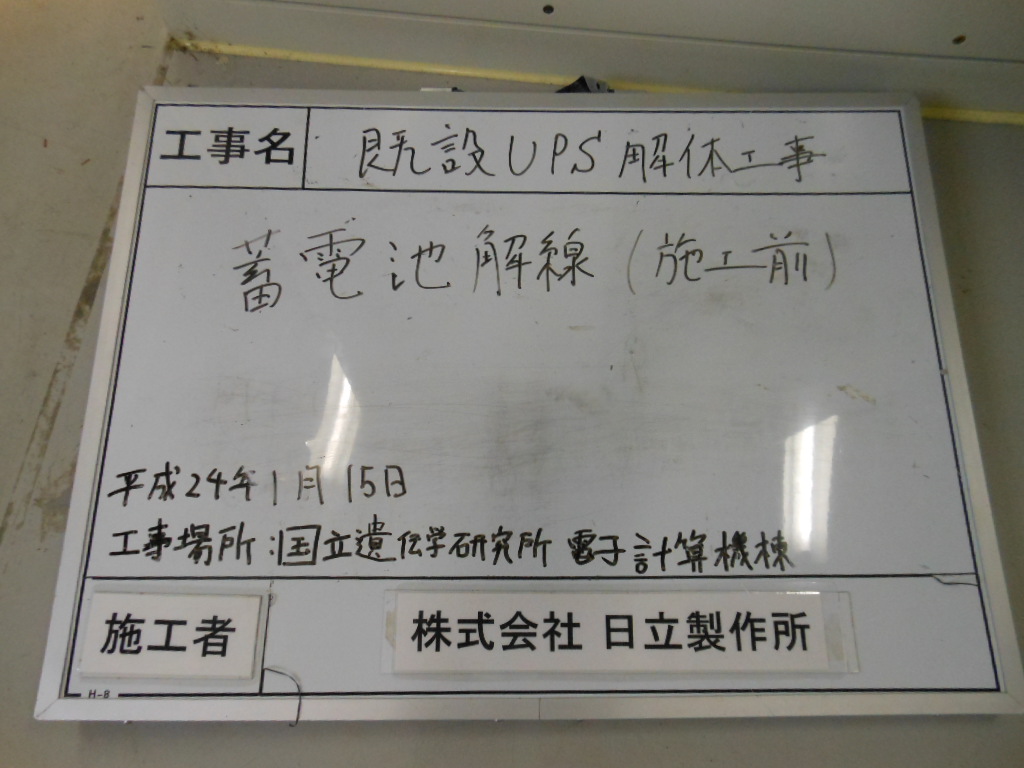 工事名 既設UPS解体工事
蓄電池解線(施工前)
平成24年1月15日
工事場所:国立遺伝学研究所 電子計算機棟
施工者 株式会社 日立製作所
H-8